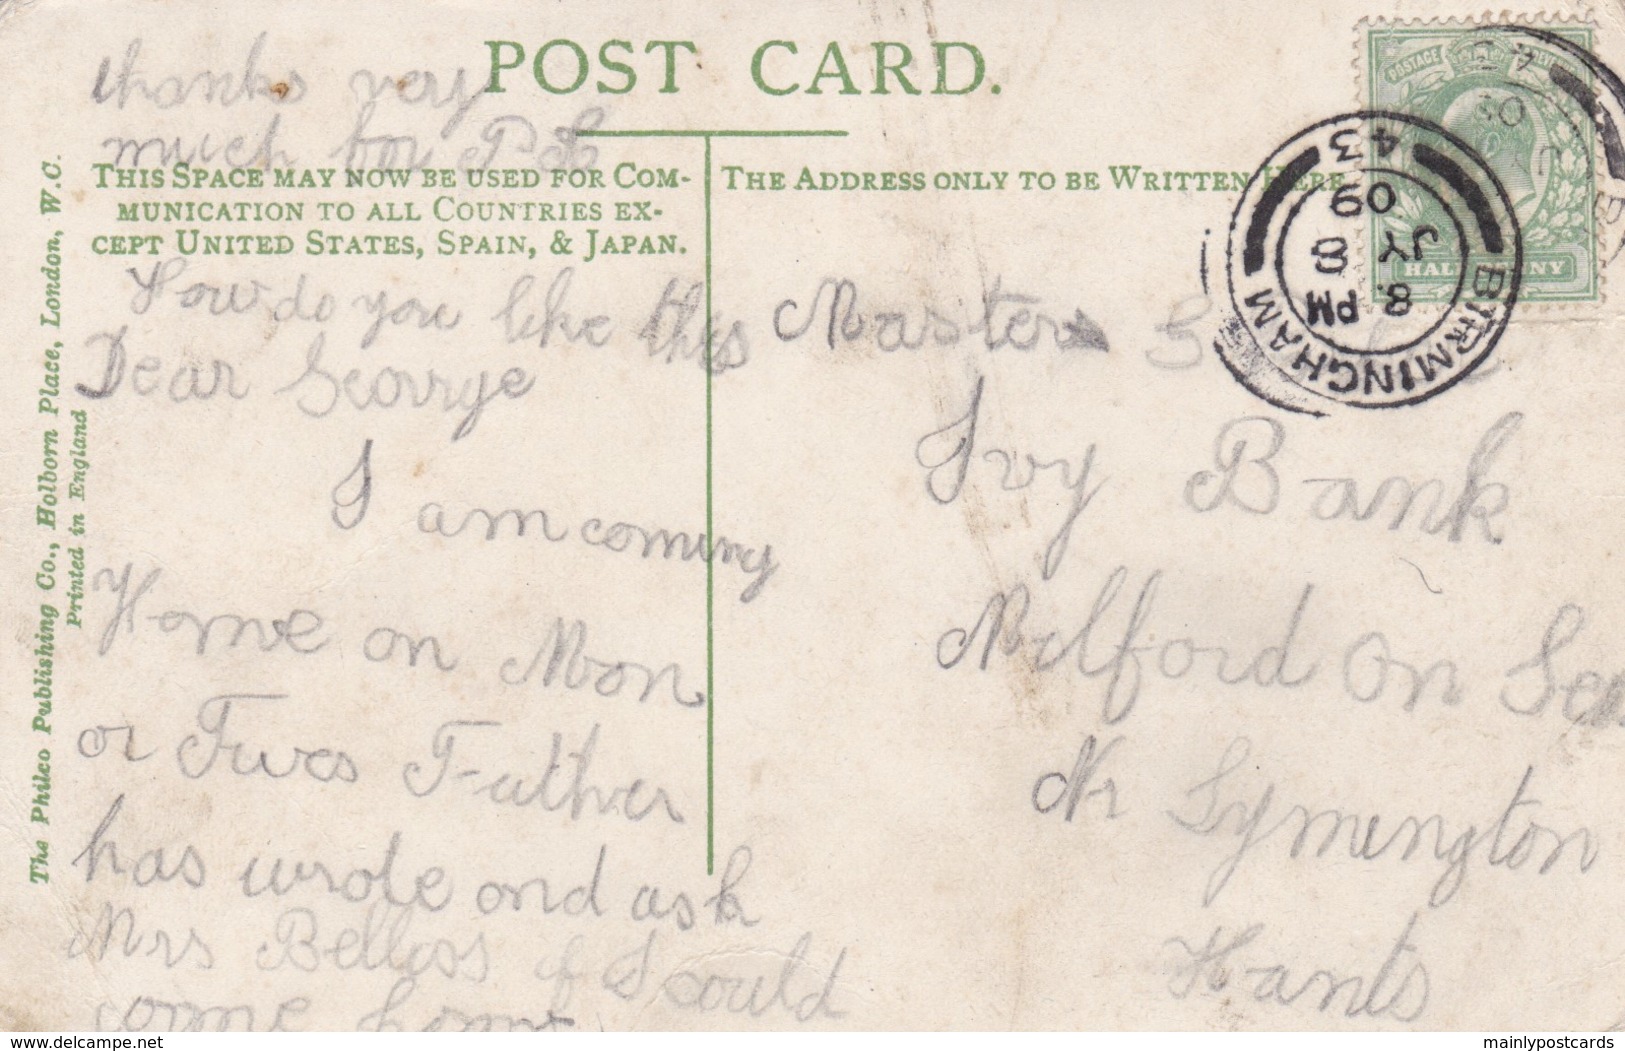 POST CARD.
thanks very
much for P C
THIS SPACE MAY NOW BE USED FOR COM-
MUNICATION TO ALL COUNTRIES EX-
CEPT UNITED STATES, SPAIN, & JAPAN.
How do you like this
Dear George
I am coming
Home on Mon
or Tues Father
has wrote and ask
Mrs Belloss if I could
come home
The Philco Publishing Co., Holborn Place, London, W.C.
Printed in England
THE ADDRESS ONLY TO BE WRITTEN HERE
Master
Ivy Bank
Milford on Sea
Nr Lymington
Hants
POSTAGE
HALFPENNY
BIRMINGHAM
8. PM
JY 8
09
43
delcampe.net
mainlypostcards